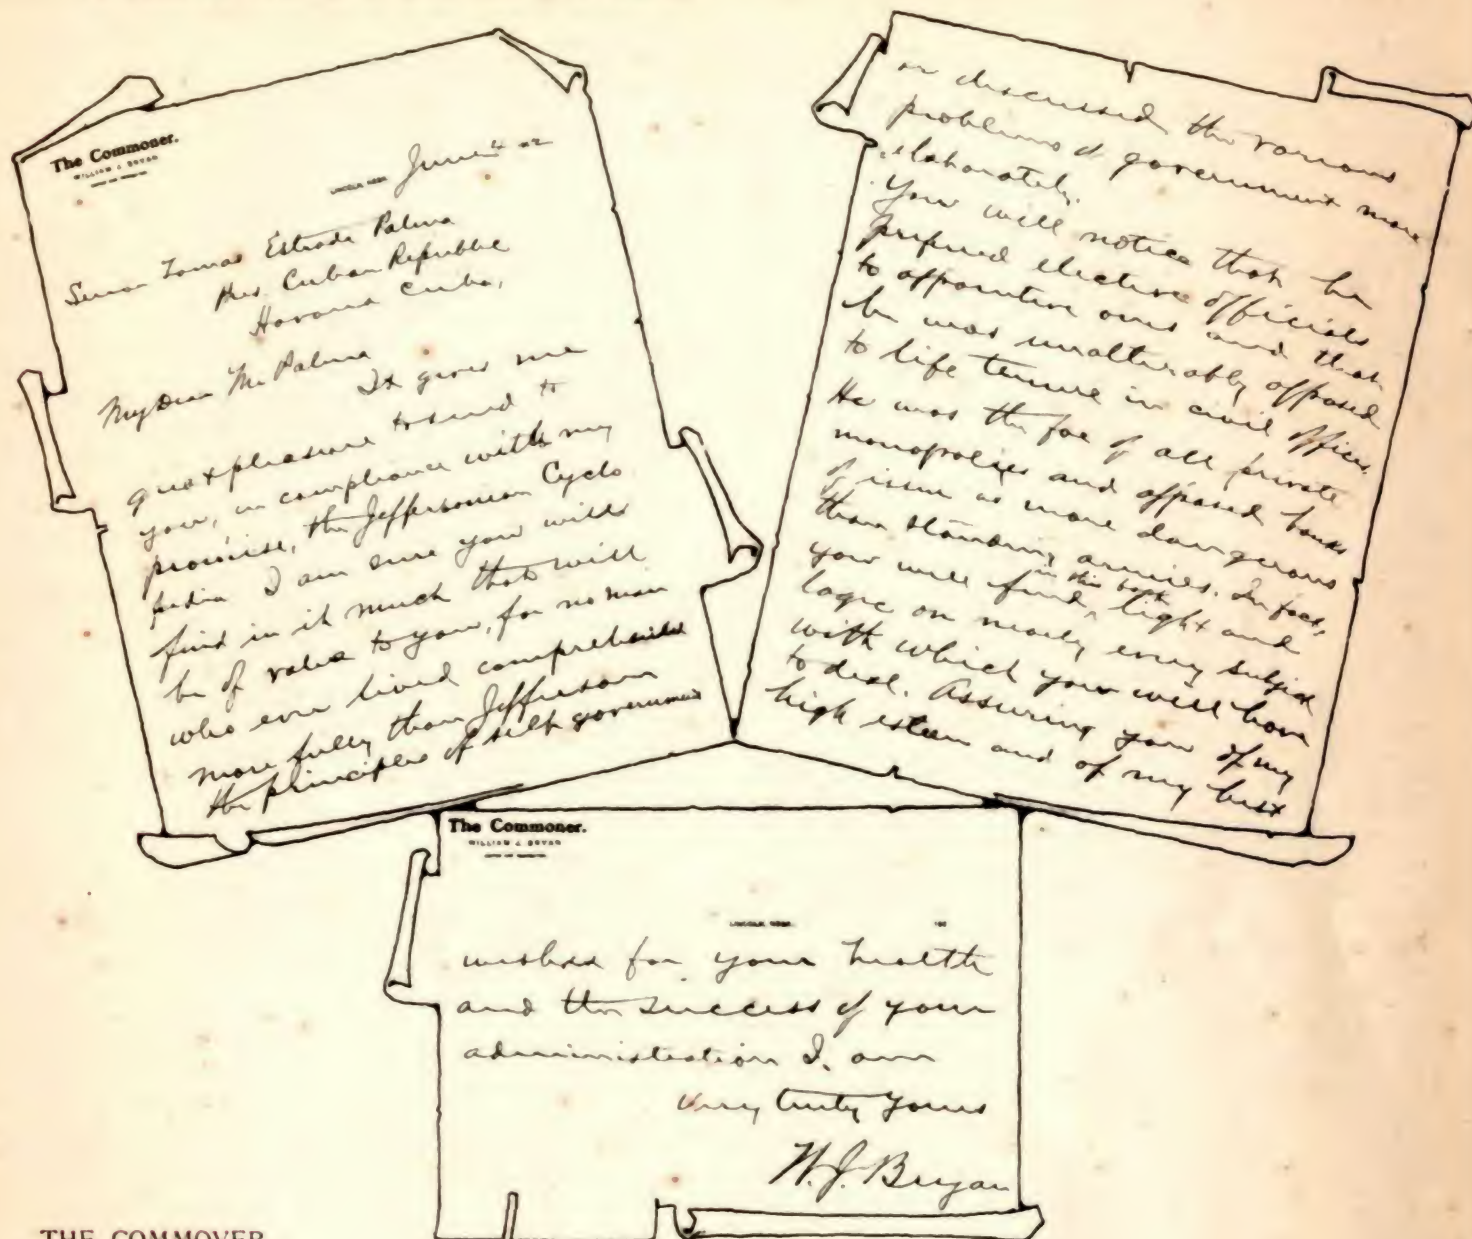 The Commoner.
WILLIAM J. BRYAN
LINCOLN, NEBR. June 4 02
Senor Tomas Estrada Palma
Pres. Cuban Republic
Havana Cuba,
My Dear Mr Palma
It gives me
great pleasure to send to
you, in compliance with my
promise, the Jeffersonian Cyclo
pedia I am sure you will
find in it much that will
be of value to you, for no man
who ever lived comprehended
more fully than Jefferson
the principles of self government
or discussed the various
problems of government more
elaborately.
You will notice that he
prefered elective officials
to appointive ones and that
he was unalterably opposed
to life tenure in civil offices.
He was the foe of all private
monopolies and opposed banks
of issue as more dangerous
than standing armies. In fact,
you will find in this book light and
logic on nearly every subject
with which you will have
to deal. Assuring you of my
high esteem and of my best
The Commoner.
WILLIAM J. BRYAN
LINCOLN, NEBR. 190
wishes for your health
and the success of your
administration I. am
Very truly yours
W. J. Bryan
THE COMMOVER